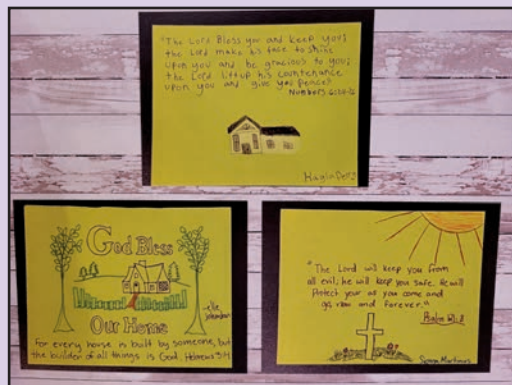 "The Lord Bless you and keep you;
the Lord make his face to shine
upon you and be gracious to you;
the Lord lift up his countenance
upon you and give you peace"
Numbers
Kayla
God Bless
Our Home
For every house is built by someone, but
the builder of all things is God. Hebrews 3:4
"The Lord will keep you from
all evil; he will keep you safe. He will
Protect your as you come and
go now and forever."
Psalm